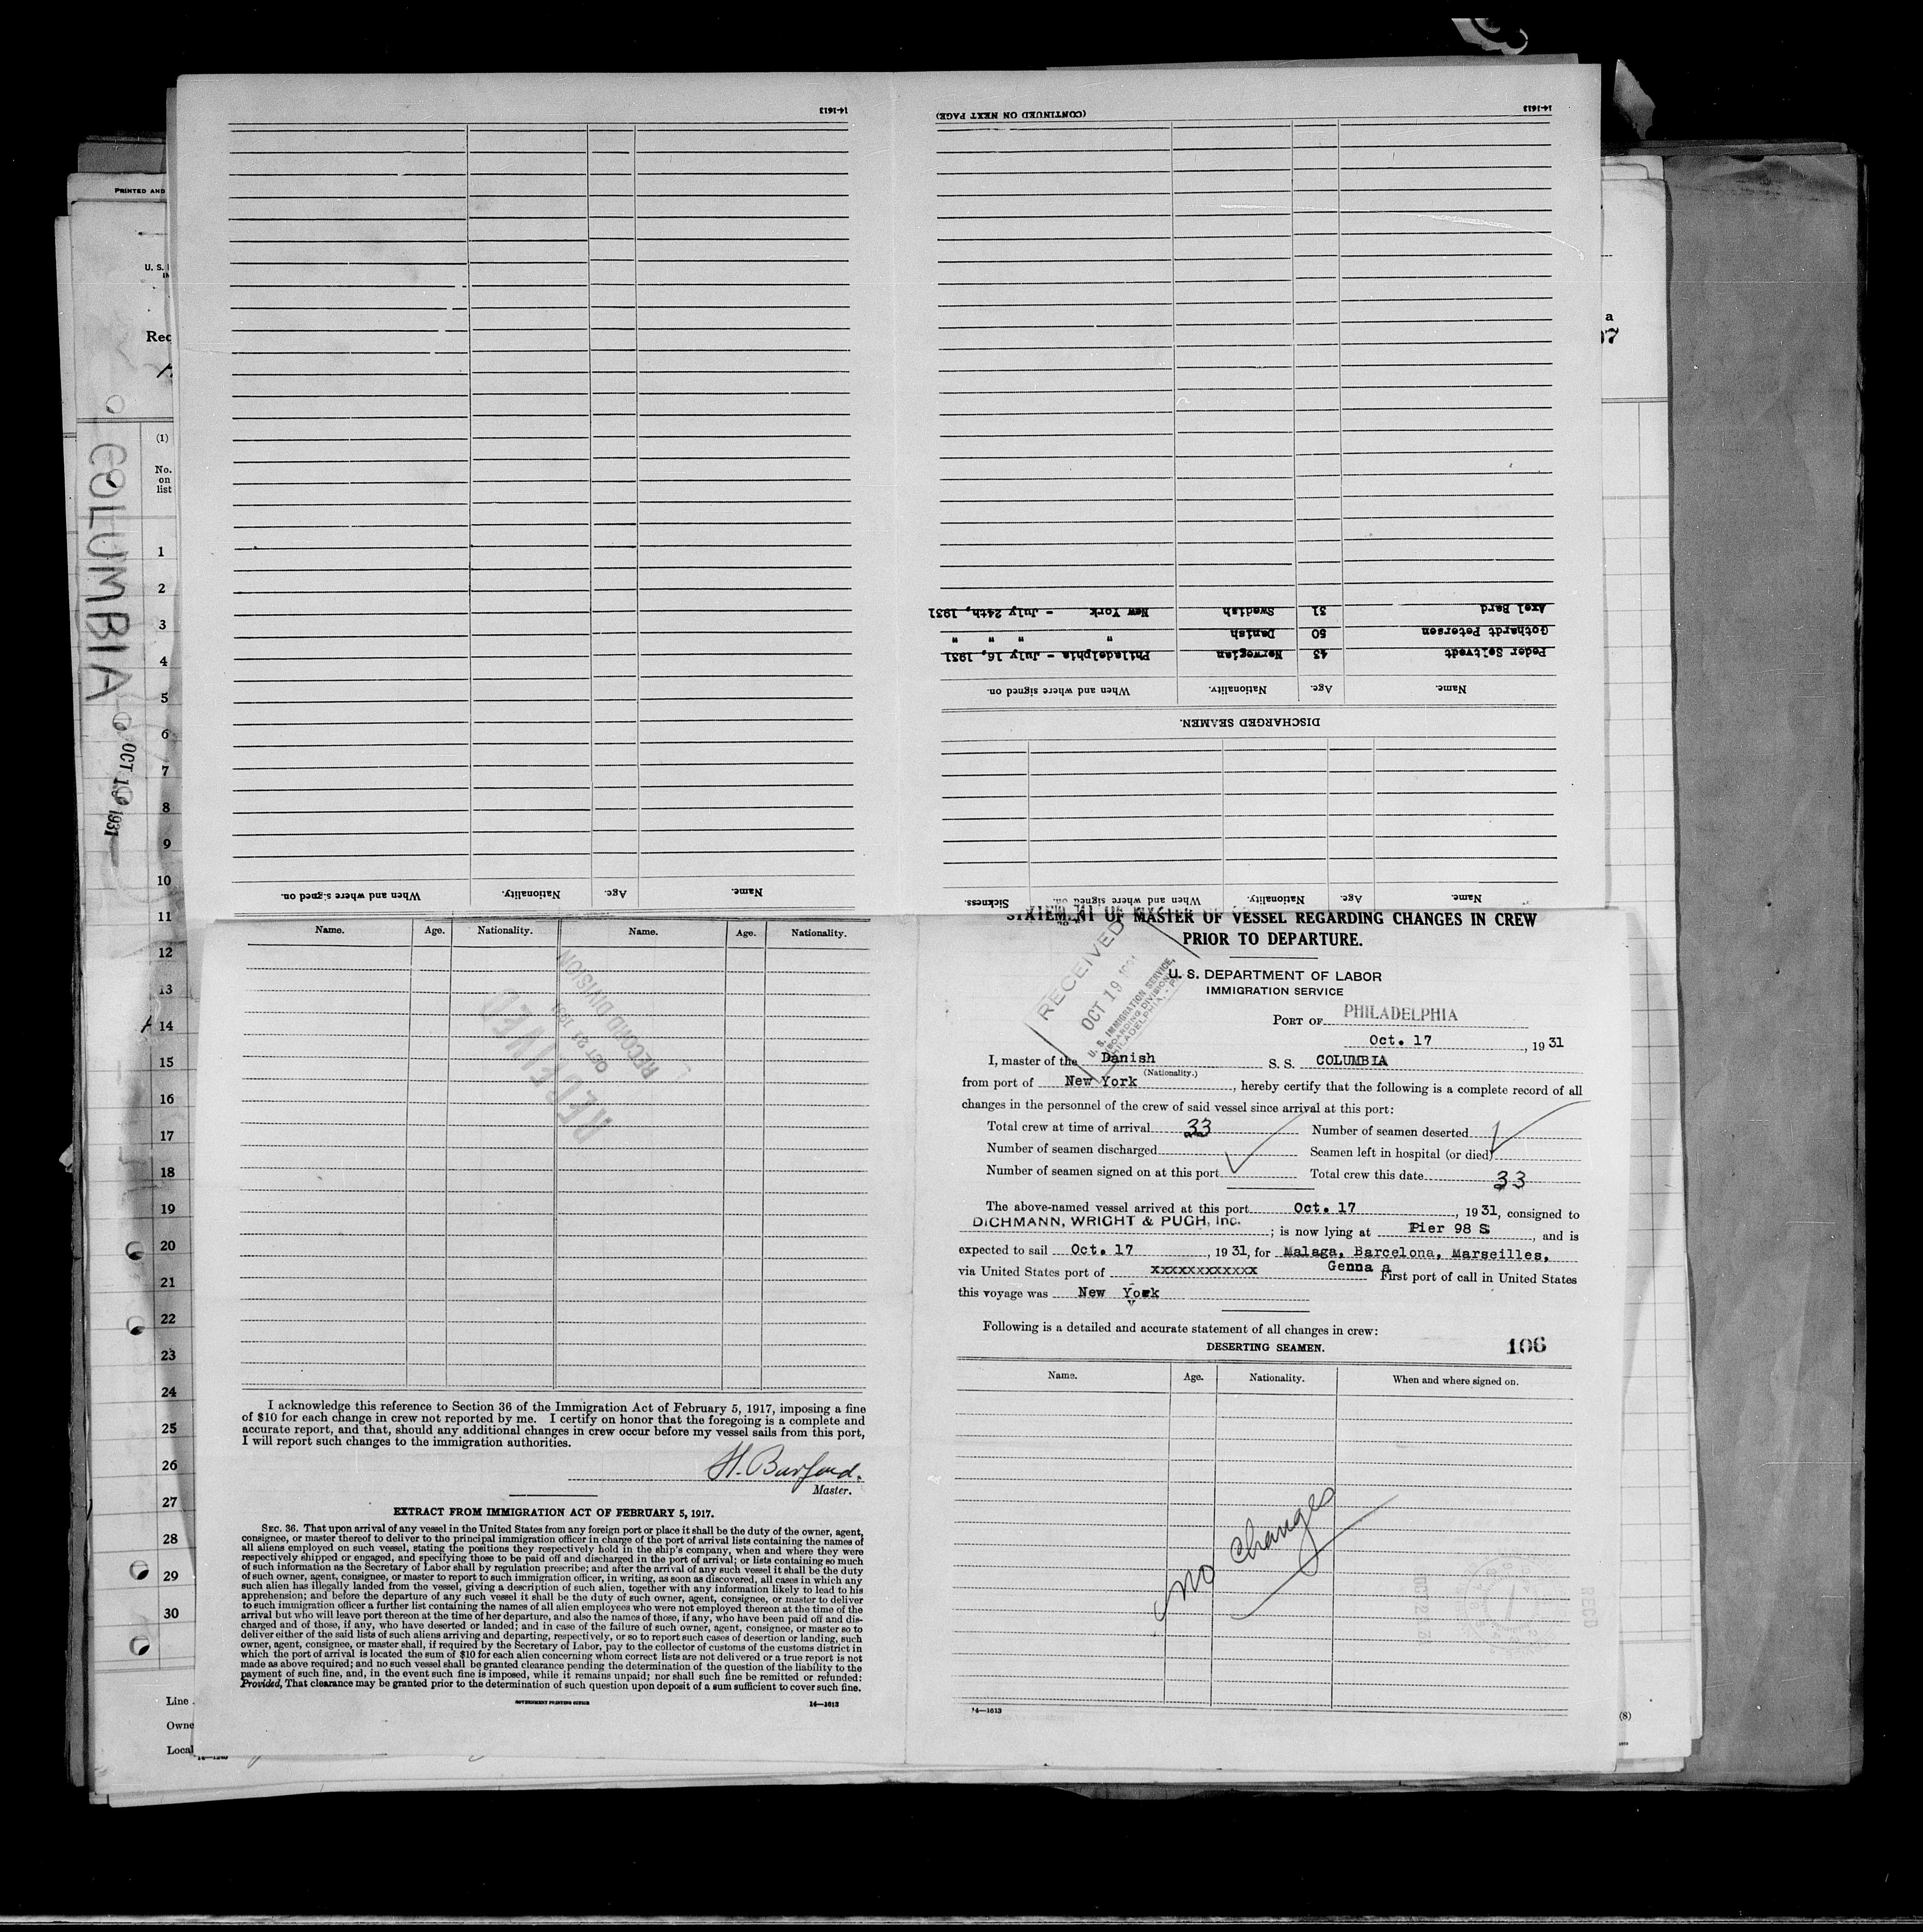 14-1613
(CONTINUED ON NEXT PAGE)
14-1613
Axel Bard 31 Swedish New York - July 24th, 1931
Gothardt Petersen 50 Danish " " " "
Peder Seltvedt 43 Norwegian Philadelphia - July 16, 1931
Name. Age. Nationality. When and where signed on.
DISCHARGED SEAMEN.
Name. Age. Nationality. When and where signed on. Sickness.
Name. Age. Nationality. When and where signed on.
PRINTED AND
U. S.
Rec
COLUMBIA
OCT 1931
(1)
No.
on
list
1
2
3
4
5
6
7
8
9
10
11
12
13
14
15
16
17
18
19
20
21
22
23
24
25
26
27
28
29
30
Line
Owne
Local
a
(8)
Name. Age. Nationality. Name. Age. Nationality.
RECEIVED
OCT 1931
RECORD DIVISION
I acknowledge this reference to Section 36 of the Immigration Act of February 5, 1917, imposing a fine
of $10 for each change in crew not reported by me. I certify on honor that the foregoing is a complete and
accurate report, and that, should any additional changes in crew occur before my vessel sails from this port,
I will report such changes to the immigration authorities.
H. Barfoed.
Master.
EXTRACT FROM IMMIGRATION ACT OF FEBRUARY 5, 1917.
SEC. 36. That upon arrival of any vessel in the United States from any foreign port or place it shall be the duty of the owner, agent,
consignee, or master thereof to deliver to the principal immigration officer in charge of the port of arrival lists containing the names of
all aliens employed on such vessel, stating the positions they respectively hold in the ship's company, when and where they were
respectively shipped or engaged, and specifying those to be paid off and discharged in the port of arrival; or lists containing so much
of such information as the Secretary of Labor shall by regulation prescribe; and after the arrival of any such vessel it shall be the duty
of such owner, agent, consignee, or master to report to such immigration officer, in writing, as soon as discovered, all cases in which any
such alien has illegally landed from the vessel, giving a description of such alien, together with any information likely to lead to his
apprehension; and before the departure of any such vessel it shall be the duty of such owner, agent, consignee, or master to deliver
to such immigration officer a further list containing the names of all alien employees who were not employed thereon at the time of the
arrival but who will leave port thereon at the time of her departure, and also the names of those, if any, who have been paid off and dis-
charged and of those, if any, who have deserted or landed; and in case of the failure of such owner, agent, consignee, or master so to
deliver either of the said lists of such aliens arriving and departing, respectively, or so to report such cases of desertion or landing, such
owner, agent, consignee, or master shall, if required by the Secretary of Labor, pay to the collector of customs of the customs district in
which the port of arrival is located the sum of $10 for each alien concerning whom correct lists are not delivered or a true report is not
made as above required; and no such vessel shall be granted clearance pending the determination of the question of the liability to the
payment of such fine, and, in the event such fine is imposed, while it remains unpaid; nor shall such fine be remitted or refunded:
Provided, That clearance may be granted prior to the determination of such question upon deposit of a sum sufficient to cover such fine.
GOVERNMENT PRINTING OFFICE
14-1613
STATEMENT OF MASTER OF VESSEL REGARDING CHANGES IN CREW
PRIOR TO DEPARTURE.
U. S. DEPARTMENT OF LABOR
IMMIGRATION SERVICE
RECEIVED
OCT 19
U. S. IMMIGRATION SERVICE,
BOARDING DIVISION,
PHILADELPHIA, - PA.
PORT OF PHILADELPHIA
Oct. 17, 1931
I, master of the Danish S. S. COLUMBIA
(Nationality.)
from port of New York, hereby certify that the following is a complete record of all
changes in the personnel of the crew of said vessel since arrival at this port:
Total crew at time of arrival 33 Number of seamen deserted
Number of seamen discharged Seamen left in hospital (or died)
Number of seamen signed on at this port Total crew this date 33
The above-named vessel arrived at this port Oct. 17, 1931, consigned to
DICHMANN, WRIGHT & PUGH, Inc.; is now lying at Pier 98 S, and is
expected to sail Oct. 17, 1931, for Malaga, Barcelona, Marseilles,
Genna a
via United States port of xxxxxxxxxxxx First port of call in United States
this voyage was New York
Following is a detailed and accurate statement of all changes in crew:
106
DESERTING SEAMEN.
Name. Age. Nationality. When and where signed on.
no changes
REC'D
14-1613